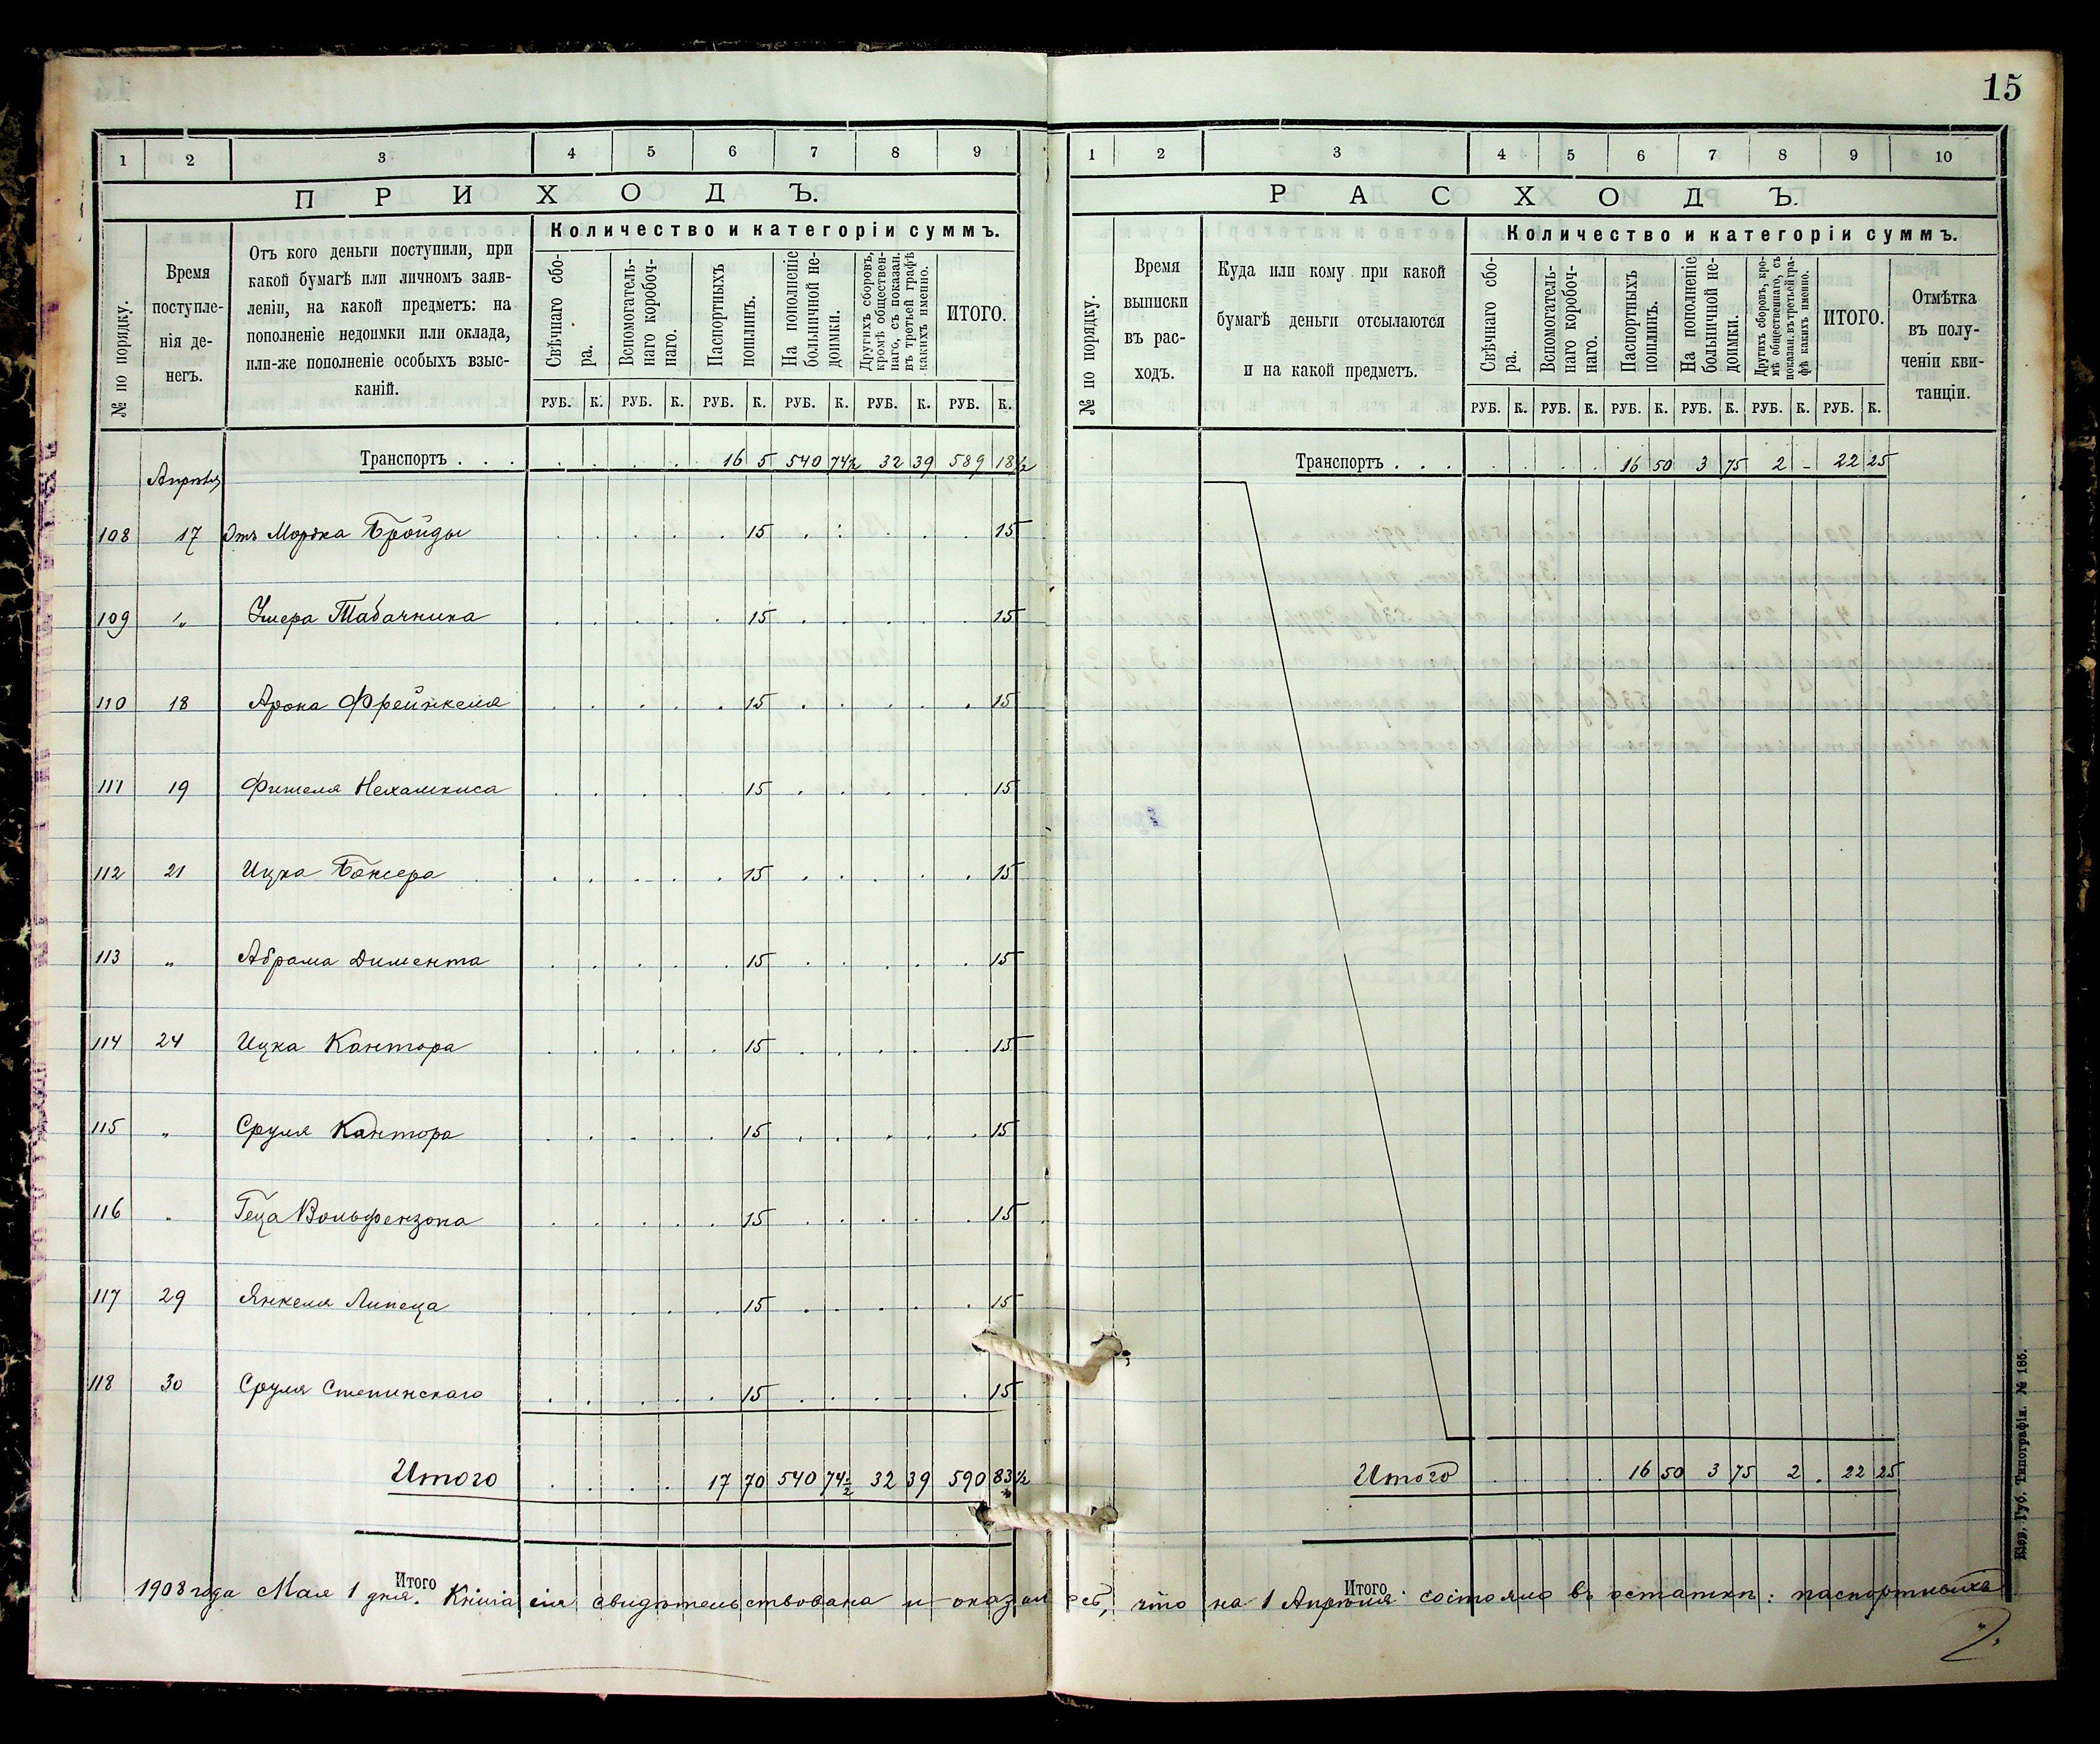 15
1 2 3 4 5 6 7 8 9
ПРИХОДЪ.
№ по порядку.
Время поступле-
нія де-
негъ.
Отъ кого деньги поступили, при
какой бумагѣ или личномъ заяв-
леніи, на какой предметъ: на
пополненіе недоимки или оклада,
или-же пополненіе особыхъ взыс-
каній.
Количество и категоріи суммъ.
Свѣчнаго сбо-
ра.
Вспомогатель-
наго коробоч-
наго.
Паспортныхъ
пошлинъ.
На пополненіе
больничной не-
доимки.
Другихъ сборовъ,
кромѣ обществен-
наго, съ показан.
въ третьей графѣ
какихъ именно.
ИТОГО.
РУБ. К. РУБ. К. РУБ. К. РУБ. К. РУБ. К. РУБ. К.
Транспортъ . . . 16 5 540 74½ 32 39 589 18½
Апрѣль
108 17 Отъ Мордка Бройды 15 15
109 " Умера Табачника 15 15
110 18 Арона Френкеля 15 15
111 19 Фишеля Нехамкиса 15 15
112 21 Ицка Боксера 15 15
113 " Абрама Димента 15 15
114 24 Ицка Кантора 15 15
115 " Сруля Кантора 15 15
116 " Геца Вольфензона 15 15
117 29 Янкеля Липеца 15 15
118 30 Сруля Степинскаго 15 15
Итого 17 70 540 74½ 32 39 590 83½
Итого
1 2 3 4 5 6 7 8 9 10
РАСХОДЪ.
№ по порядку.
Время
выписки
въ рас-
ходъ.
Куда или кому при какой
бумагѣ деньги отсылаются
и на какой предметъ.
Количество и категоріи суммъ.
Свѣчнаго сбо-
ра.
Вспомогатель-
наго коробоч-
наго.
Паспортныхъ
пошлинъ.
На пополненіе
больничной не-
доимки.
Другихъ сборовъ, кро-
мѣ общественнаго, съ
показан. въ третьей гра-
фѣ какихъ именно.
ИТОГО.
Отмѣтка
въ полу-
ченіи кви-
танціи.
РУБ. К. РУБ. К. РУБ. К. РУБ. К. РУБ. К. РУБ. К.
Транспортъ . . . 16 50 3 75 2 - 22 25
Итого 16 50 3 75 2 . 22 25
Итого
1908 года Мая 1 дня. Книга сія свидѣтельствована и оказалось, что на 1 Апрѣля состояло въ остаткѣ: паспортныхъ
Кіев. Губ. Типографія. № 185.